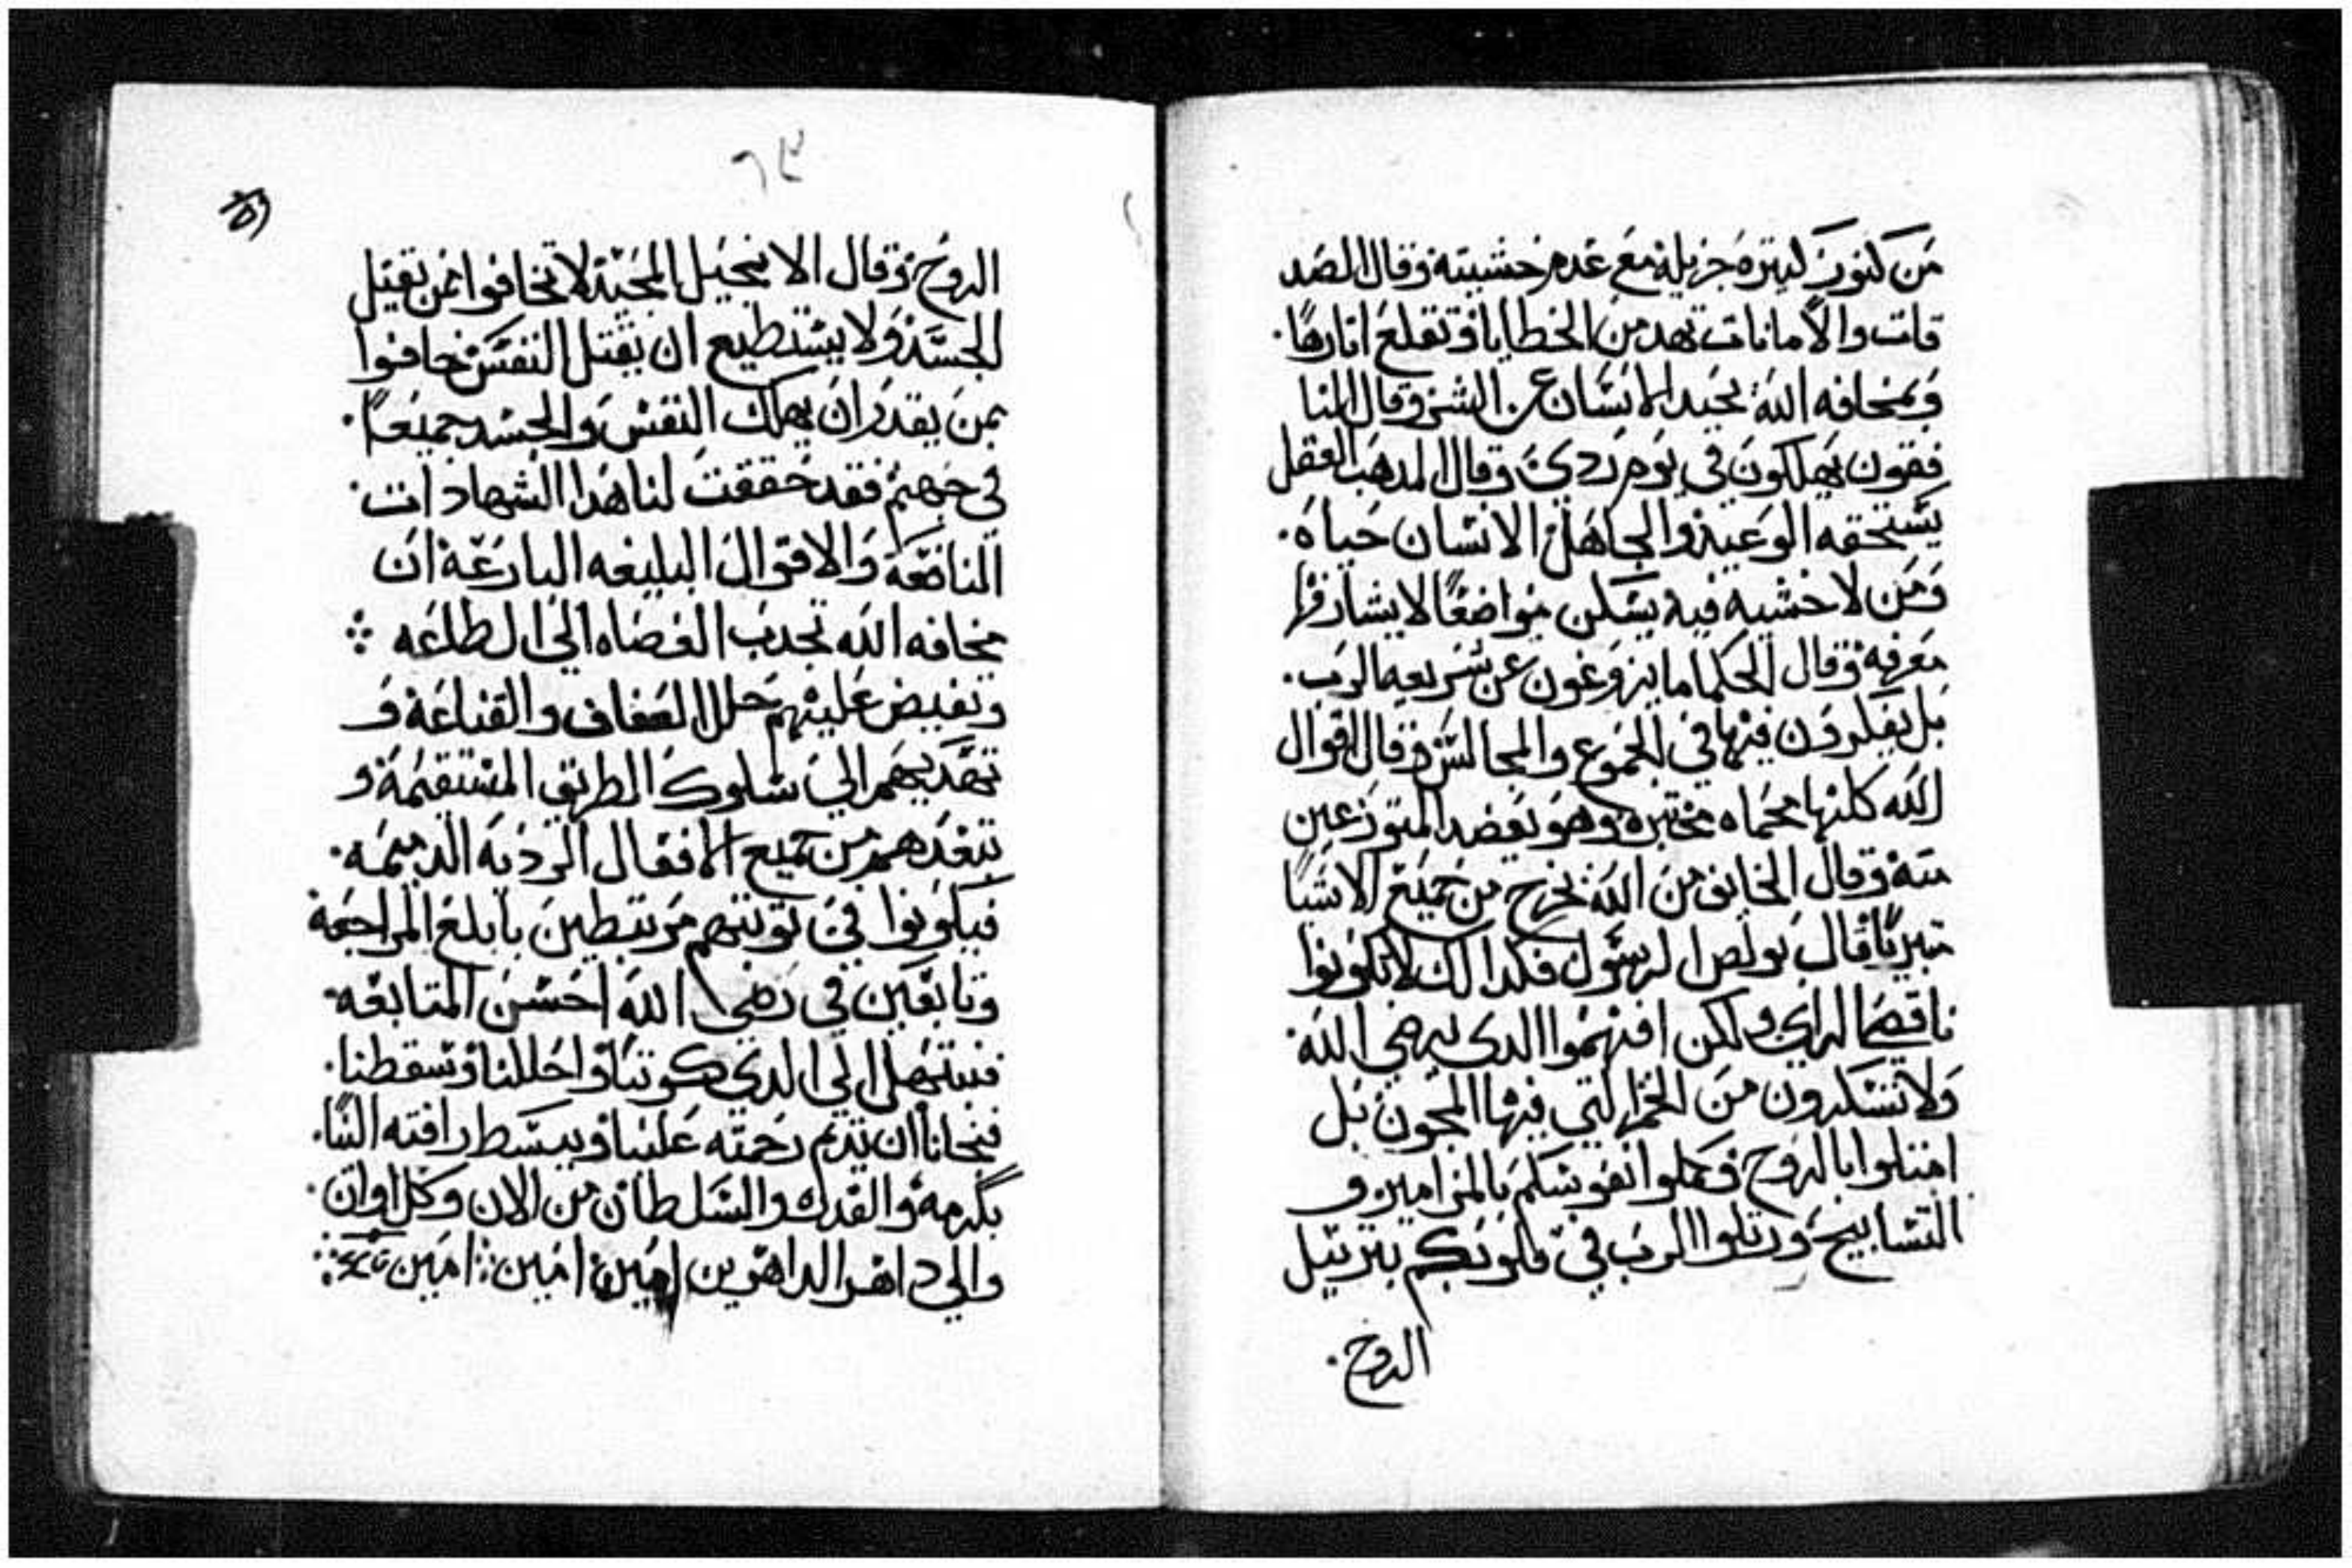 من كنوز كبيره جزيله مع عدم خشيته وقال الصد
قات والامانات تهدمن الخطايا وتقلع اثارها.
وبمخافه الله يحيد الانسان عن الشر وقال المنا
فقون يهلكون في يوم ردي وقال المدهب العقل
يستحقه الوعيد والجاهل الانسان حياه.
ومن لا خشيه فيه يسكن مواضعا لا يشارفها
معرفه وقال الحكما ما يزوغون عن شريعه الرب.
بل يفكرون فيها في الجموع والمجالس وقال اقوال
الله كلها محماه مختبره وهو يعضد المتورعين
منه وقال الخايف من الله يخرج من جميع الاشيا
تبريا قال بولص الرسول فكدالك لا تكونوا
ناقصي الراي ولكن افهموا الدي يرضي الله.
ولا تسكرون من الخمر التي فيها المجون بل
امتلوا بالروح وكملوا نفوسكم بالمزامير و
التسابيح ورتلوا الرب في قلوبكم بترتيل
الروح.
٦٢
الروح وقال الانجيل المجيد لا تخافوا ممن يقتل
الجسد ولا يستطيع ان يقتل النفس خافوا
ممن يقدر ان يهلك النفس والجسد جميعا.
في جهنم فقد حققت لنا هدا الشهادات.
النافعه والاقوال البليغه البارعه ان
مخافه الله تجدب العصاه الي الطاعه
وتفيض عليهم حلل العفاف والقناعه و
تهديهم الي سلوك الطريق المستقيمه و
تبعدهم من جميع الافعال الرديه الدميمه.
فيكونوا في توبتهم مرتبطين بابلغ المراجعه
وتابعين في رضي الله احسن المتابعه.
فنبتهل الي الدي كوننا واحلنا وسقطنا.
فنجانا ان يديم رحمته علينا ويبسط رافته الينا.
بكرمه والقدره والسلطان من الان وكل اوان.
والي داهر الداهرين امين امين امين